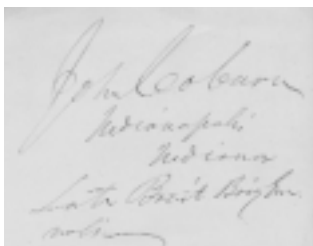 John Coburn
Indianapolis
Indiana
Late Brevt Brig